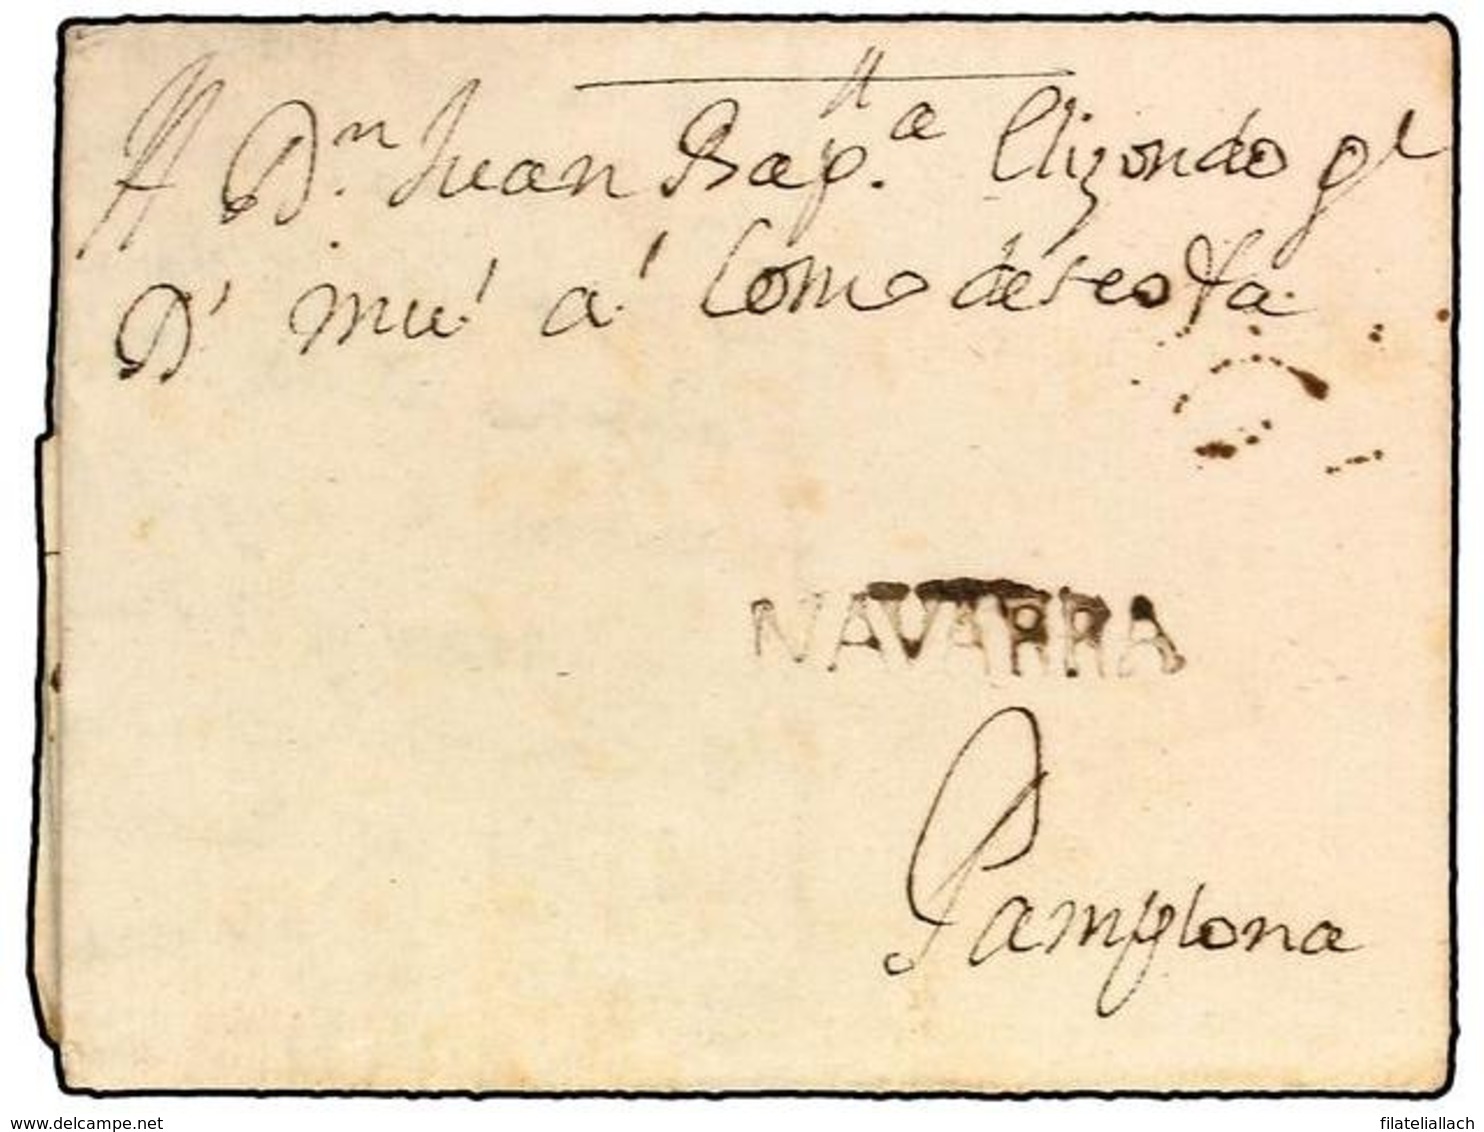 A Dn. Juan Bapta. Elizondo gl
D' mu' a' Como desea
NAVARRA
Pamplona
www.delcampe.net
filateliallach